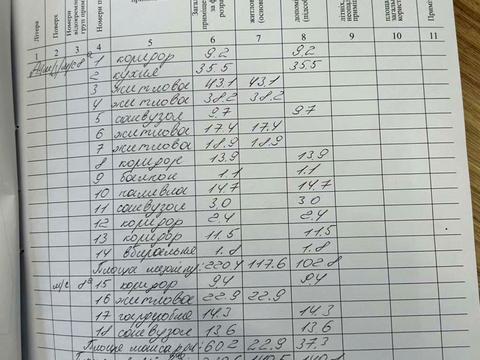 Літера Поверх Номери групи
1 2 3 4 5 6 7 8 9 10 11
1 коридор 9.2 9.2
2 кухня 35.5 35.5
3 житлова 43.1 43.1
4 житлова 38.2 38.2
5 санвузол 9.7 9.7
6 житлова 17.4 17.4
7 житлова 18.9 18.9
8 коридор 13.9 13.9
9 балкон 1.1 1.1
10 паливна 14.7 14.7
11 санвузол 3.0 3.0
12 коридор 2.4 2.4
13 коридор 11.5 11.5
14 вбиральня 1.8 1.8
Площа 220.4 117.6 102.8
м/с 8ª 15 коридор 9.4 9.4
16 житлова 22.9 22.9
17 гардеробна 14.3 14.3
18 санвузол 13.6 13.6
Площа мансарди: 60.2 22.9 37.3